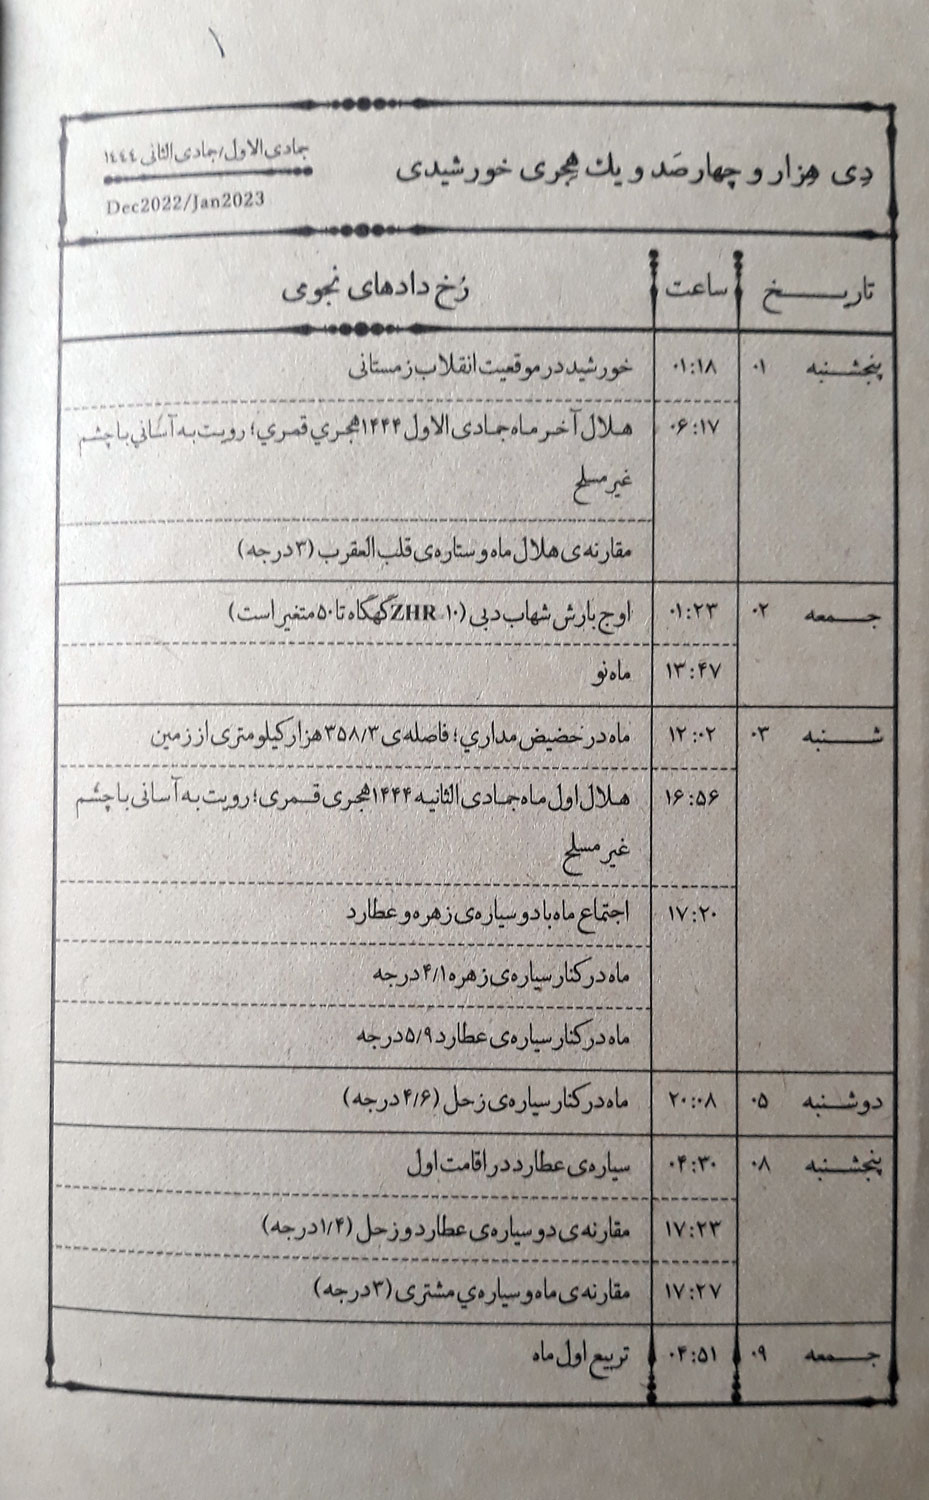 ۱
دِی هِزار و چهارصَد و یك هِجری خورشیدی
جمادی الاول/جمادی الثانی ۱٤٤٤
Dec2022/Jan2023
تاریخ ساعت رُخ دادهای نجومی
پنجشنبه ۰۱ ۰۱:۱۸ خورشید در موقعیت انقلاب زمستانی
۰۶:۱۷ هلال آخر ماه جمادی الاول ۱۴۴۴ هجري قمري؛ رویت به آسانی با چشم
غیر مسلح
مقارنه‌ی هلال ماه و ستاره‌ی قلب العقرب (۳ درجه)
جمعه ۰۲ ۰۱:۲۳ اوج بارش شهاب دبی (ZHR ۱۰ گهگاه تا ۵۰ متغیر است)
۱۳:۴۷ ماه نو
شنبه ۰۳ ۱۲:۰۲ ماه در حضیض مداري؛ فاصله‌ی ۳۵۸/۳ هزار کیلومتری از زمین
۱۶:۵۶ هلال اول ماه جمادی الثانیه ۱۴۴۴ هجری قمری؛ رویت به آسانی با چشم
غیر مسلح
۱۷:۲۰ اجتماع ماه با دو سیاره‌ی زهره و عطارد
ماه در کنار سیاره‌ی زهره ۴/۱ درجه
ماه در کنار سیاره‌ی عطارد ۵/۹ درجه
دوشنبه ۰۵ ۲۰:۰۸ ماه در کنار سیاره‌ی زحل (۴/۶ درجه)
پنجشنبه ۰۸ ۰۴:۳۰ سیاره‌ی عطارد در اقامت اول
۱۷:۲۳ مقارنه‌ی دو سیاره‌ی عطارد و زحل (۱/۴ درجه)
۱۷:۲۷ مقارنه‌ی ماه و سیاره‌ي مشتری (۳ درجه)
جمعه ۰۹ ۰۴:۵۱ تربیع اول ماه